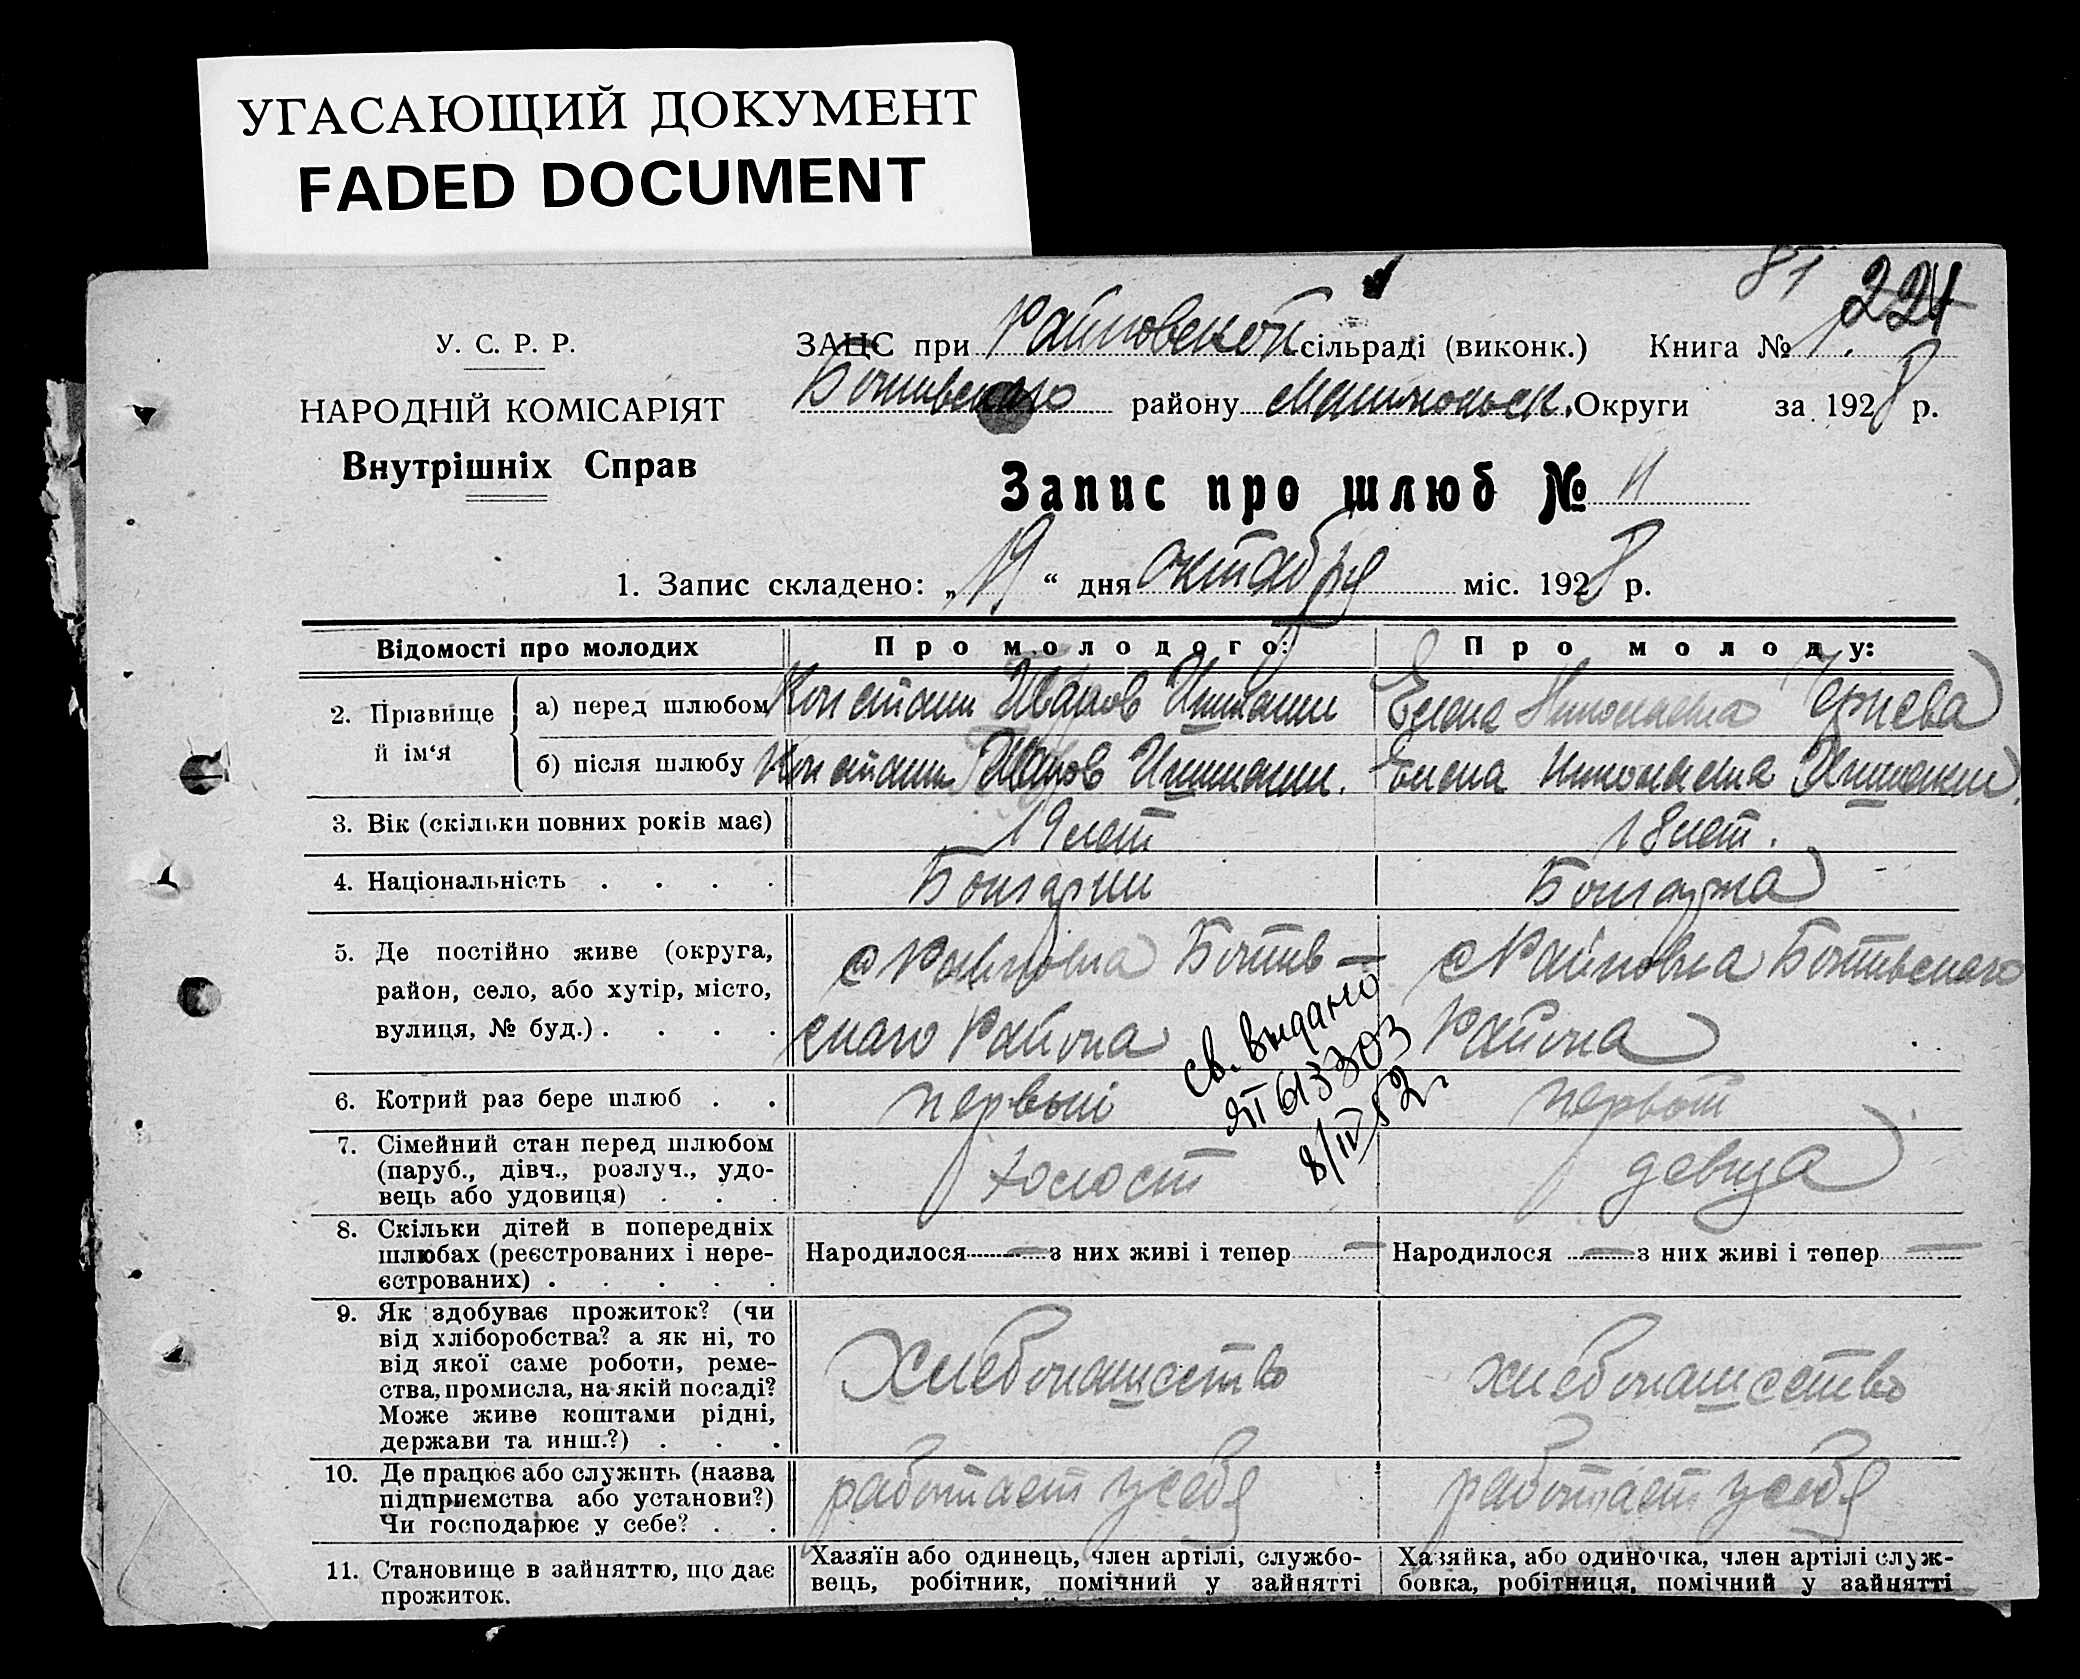 УГАСАЮЩИЙ ДОКУМЕНТ
FADED DOCUMENT
81 221
У. С. Р. Р.
НАРОДНІЙ КОМІСАРІЯТ
Внутрішніх Справ
ЗАЦС при Райновской сільраді (виконк.) Книга № 1.
Ботивского району Району Мелитопольск. Округи за 1928 р.
Запис про шлюб № 11
1. Запис складено: „19“ дня октября міс. 1928 р.
Відомості про молодих Про молодого: Про молоду:
2. Прізвище й ім‘я
а) перед шлюбом Констанин Иванов Елена Николаевна
б) після шлюбу Констанин Иванов Елена Николаевна
3. Вік (скільки повних років має) 19 лет 18 лет.
4. Національність . . . . Болгарин Болгарка
5. Де постійно живе (округа, с Райновка Ботив- с Райновка Ботивскаго
район, село, або хутір, місто,
вулиця, № буд.) . . . . скаго Района Района
св. выдано
ЯП 613303
8/IV 52 г
6. Котрий раз бере шлюб . . первый первый
7. Сімейний стан перед шлюбом
(паруб., дівч., розлуч., удо- холост девица
вець або удовиця) . . .
8. Скільки дітей в попередніх
шлюбах (реєстрованих і нере- Народилося — з них живі і тепер — Народилося — з них живі і тепер —
єстрованих) . . . . .
9. Як здобуває прожиток? (чи
від хліборобства? а як ні, то
від якої саме роботи, реме- Хлебопашество хлебопашество
ства, промисла, на якій посаді?
Може живе коштами рідні,
держави та инш.?) . . .
10. Де працює або служить (назва
підприємства або установи?) работает у себя работает у себя
Чи господарює у себе? . .
11. Становище в зайняттю, що дає
прожиток.
Хазяїн або одинець, член артілі, службо-
вець, робітник, помічний у зайнятті
Хазяйка, або одиночка, член артілі служ-
бовка, робітниця, помічний у зайнятті